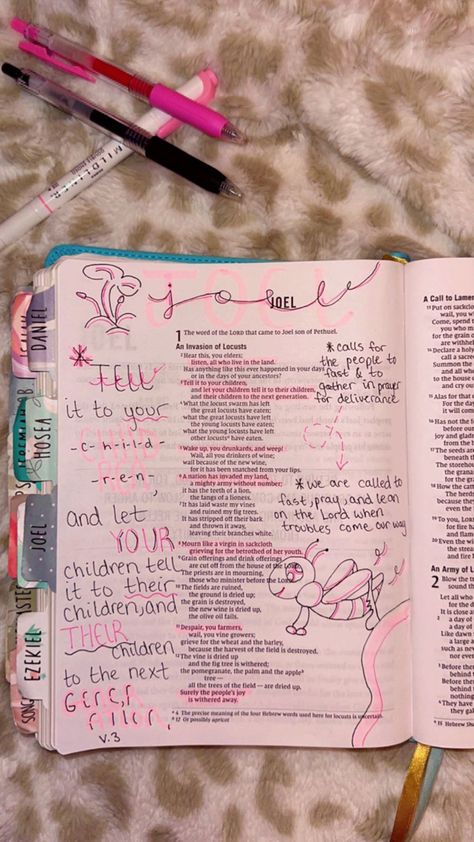 MILDLINER
JOEL
Joel
JOEL
1 The word of the LORD that came to Joel son of Pethuel.
An Invasion of Locusts
2 Hear this, you elders;
listen, all who live in the land.
Has anything like this ever happened in your days
or in the days of your ancestors?
3 Tell it to your children,
and let your children tell it to their children,
and their children to the next generation.
4 What the locust swarm has left
the great locusts have eaten;
what the great locusts have left
the young locusts have eaten;
what the young locusts have left
other locusts a have eaten.
5 Wake up, you drunkards, and weep!
Wail, all you drinkers of wine;
wail because of the new wine,
for it has been snatched from your lips.
6 A nation has invaded my land,
a mighty army without number;
it has the teeth of a lion,
the fangs of a lioness.
7 It has laid waste my vines
and ruined my fig trees.
It has stripped off their bark
and thrown it away,
leaving their branches white.
8 Mourn like a virgin in sackcloth
grieving for the betrothed of her youth.
9 Grain offerings and drink offerings
are cut off from the house of the LORD.
The priests are in mourning,
those who minister before the LORD.
10 The fields are ruined,
the ground is dried up;
the grain is destroyed,
the new wine is dried up,
the olive oil fails.
11 Despair, you farmers,
wail, you vine growers;
grieve for the wheat and the barley,
because the harvest of the field is destroyed.
12 The vine is dried up
and the fig tree is withered;
the pomegranate, the palm and the apple b
tree —
all the trees of the field — are dried up.
Surely the people's joy
is withered away.
a 4 The precise meaning of the four Hebrew words used here for locusts is uncertain.
b 12 Or possibly apricot
* TELL
it to your
-c-h-i-l-d-
-r-e-n-
and let
YOUR
children tell
it to their
children, and
THEIR
children
to the next
GENER
ATION.
v.3
* calls for
the people to
fast & to
gather in prayer
for deliverance
* we are called to
fast, pray, and lean
on the Lord when
troubles come our way
DANIEL
HOSEA
JOEL
EZEKIEL
SONG
A Call to Lamen
13 Put on sackclo
wail, you w
Come, spend t
you who mi
for the grain o
are withheld
14 Declare a holy
call a sacred
Summon the
and all who
to the house
and cry ou
15 Alas for that
For the day
it will com
16 Has not the f
before our
joy and gladn
from the h
17 The seeds are
beneath th
The storehous
18 How the catt
The herds
because they
even the fl
19 To you, LORD
for fire ha
and flam
20 Even the wil
An Army of L
2 Blow the t
sound th
Let all who
for the da
It is close a
2 a day of
a day of
Like dawn
a large a
such as nev
nor ever
3 Before the
behind t
Before the
behind t
nothing
4 They have
they gal